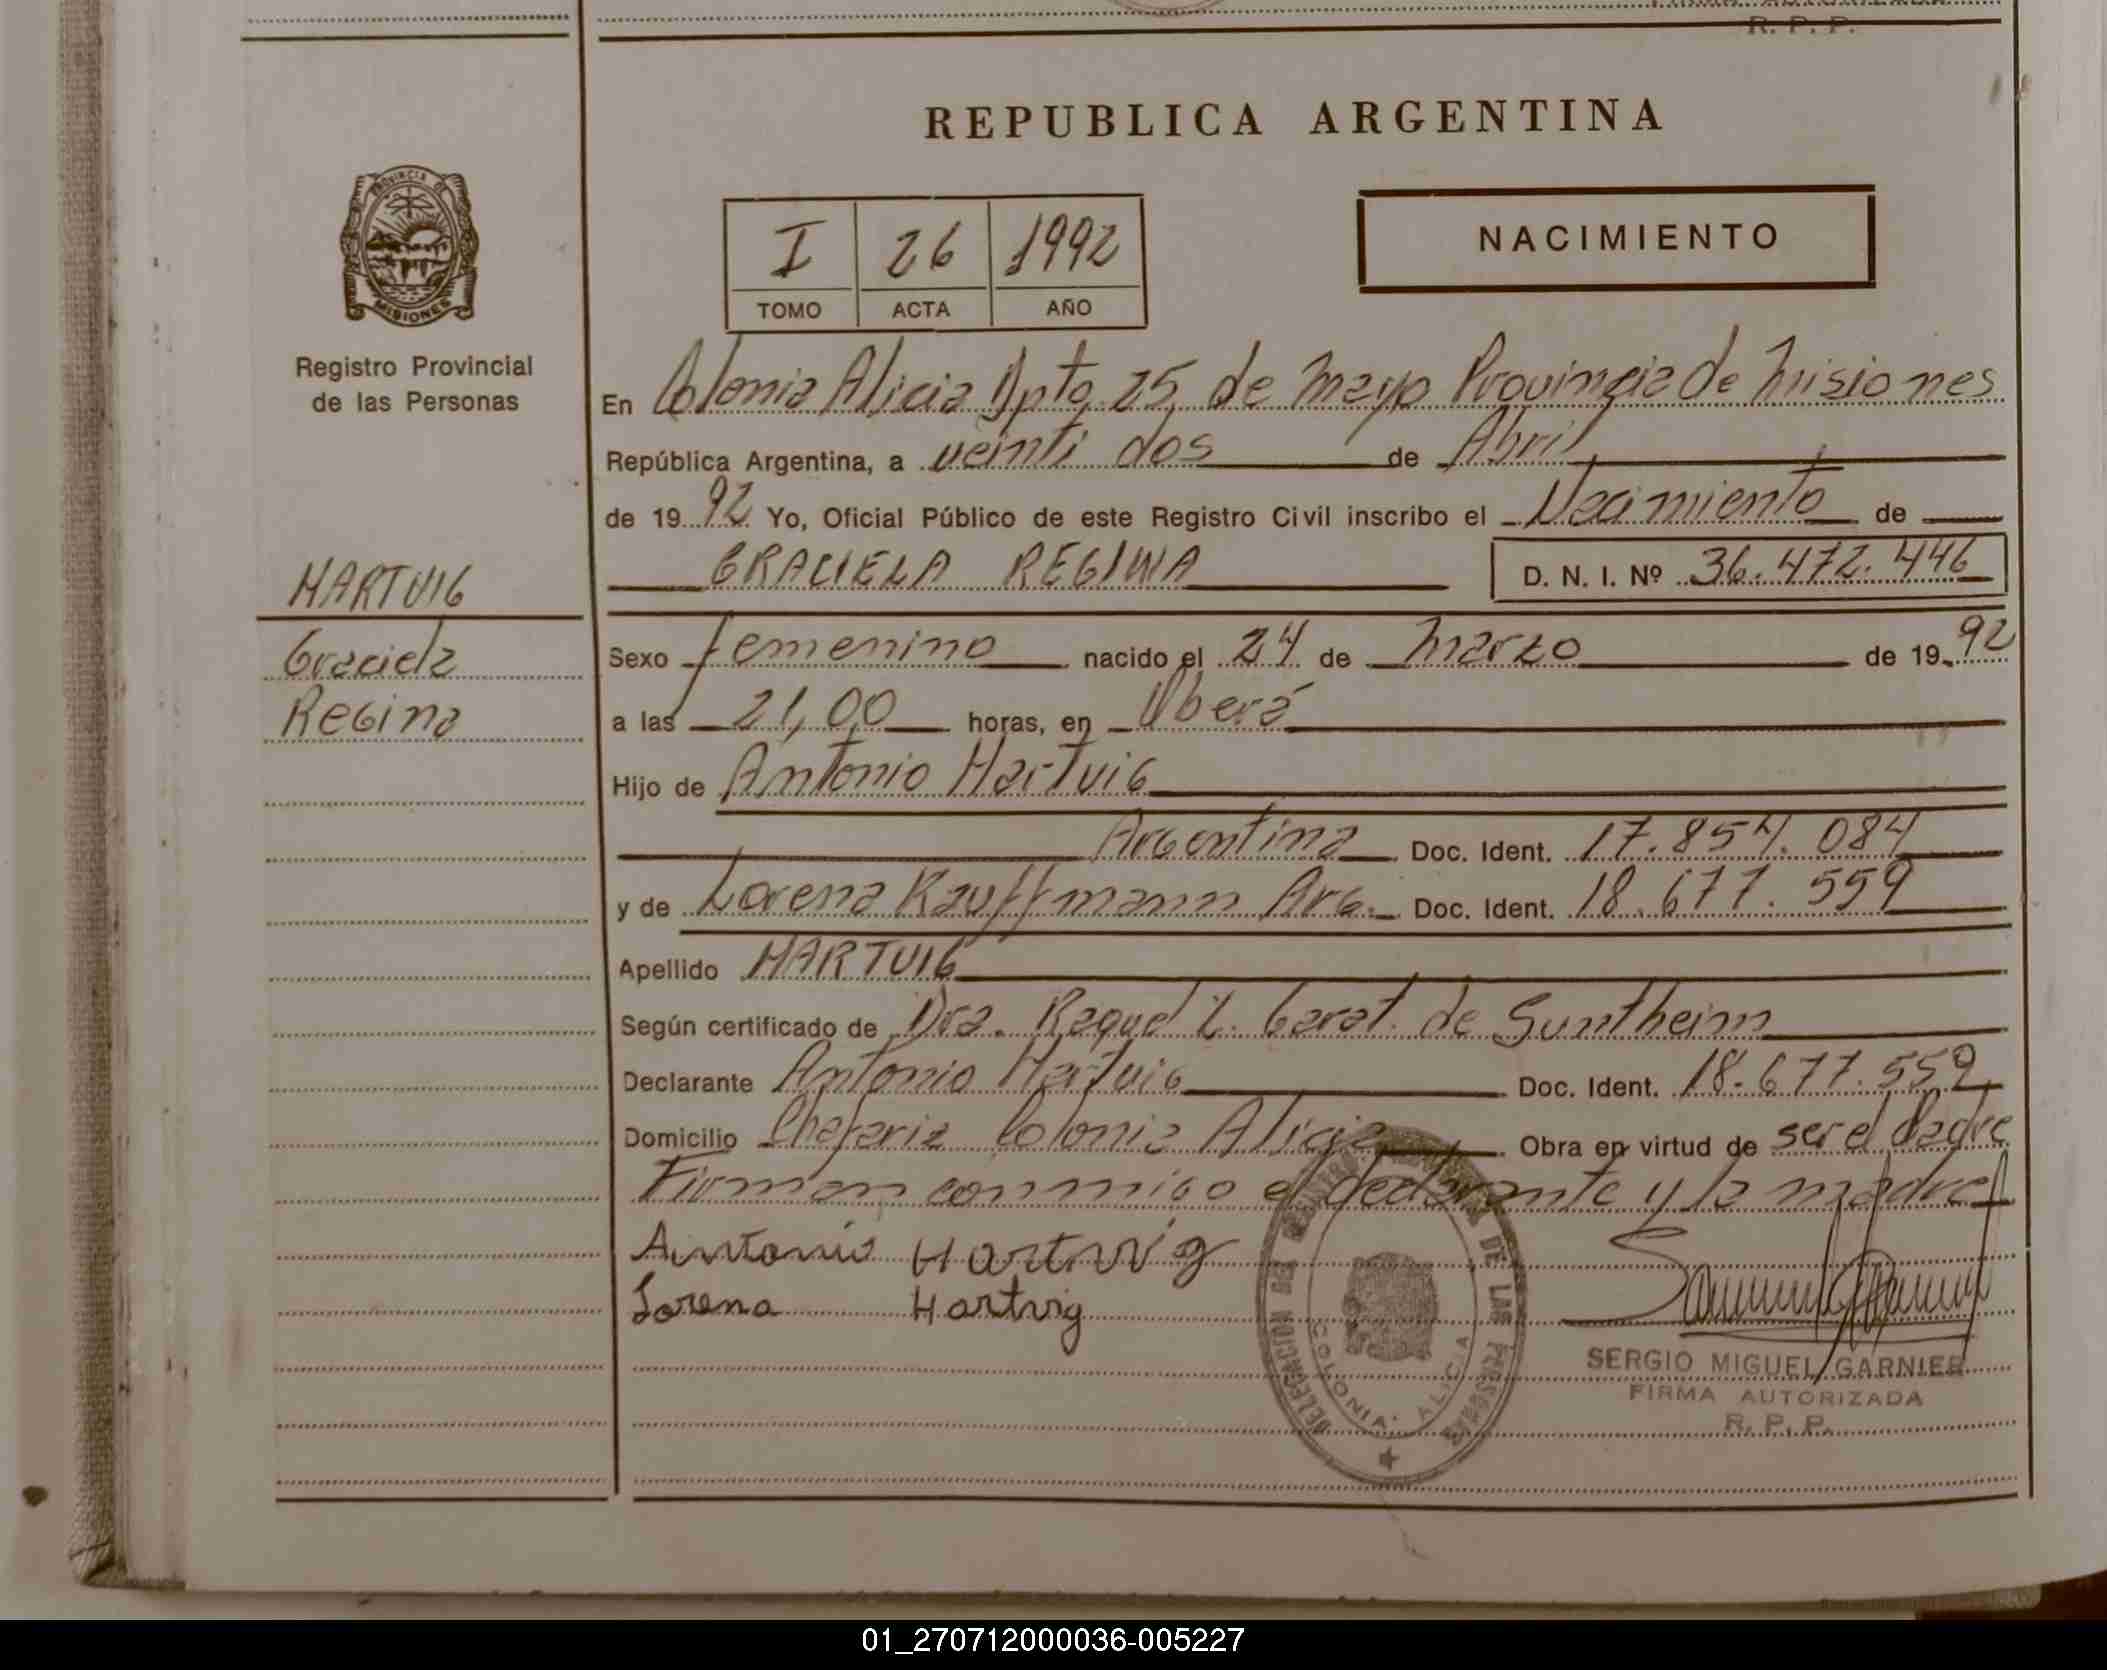 R. P. P.
REPUBLICA ARGENTINA
PROVINCIA DE
MISIONES
Registro Provincial
de las Personas
I 26 1992
TOMO ACTA AÑO
NACIMIENTO
En Colonia Alicia Dpto, 25, de Mayo Provincia de Misiones
República Argentina, a veinti dos de Abril
de 1992 Yo, Oficial Público de este Registro Civil inscribo el Nacimiento de
GRACIELA REGINA D. N. I. Nº 36.472.446
HARTVIG
Graciela
Regina
Sexo femenino nacido el 24 de Marzo de 1992
a las 21,00 horas, en Oberá
Hijo de Antonio Hartvig
Argentina Doc. Ident. 17.854.084
y de Lorena Kauffmann Arg. Doc. Ident. 18.677.559
Apellido HARTVIG
Según certificado de Dra. Raquel Z. Garat. de Suntheim
Declarante Antonio Hartvig Doc. Ident. 18.677.559
Domicilio Chafariz Colonia Alicia Obra en virtud de ser el Padre
Firman conmigo el declarante y la madre
Antonio Hartvig
Lorena Hartvig
DELEGACION DEL REGISTRO PROVINCIAL DE LAS PERSONAS
COLONIA ALICIA
SERGIO MIGUEL GARNIER
FIRMA AUTORIZADA
R. P. P.
01_270712000036-005227